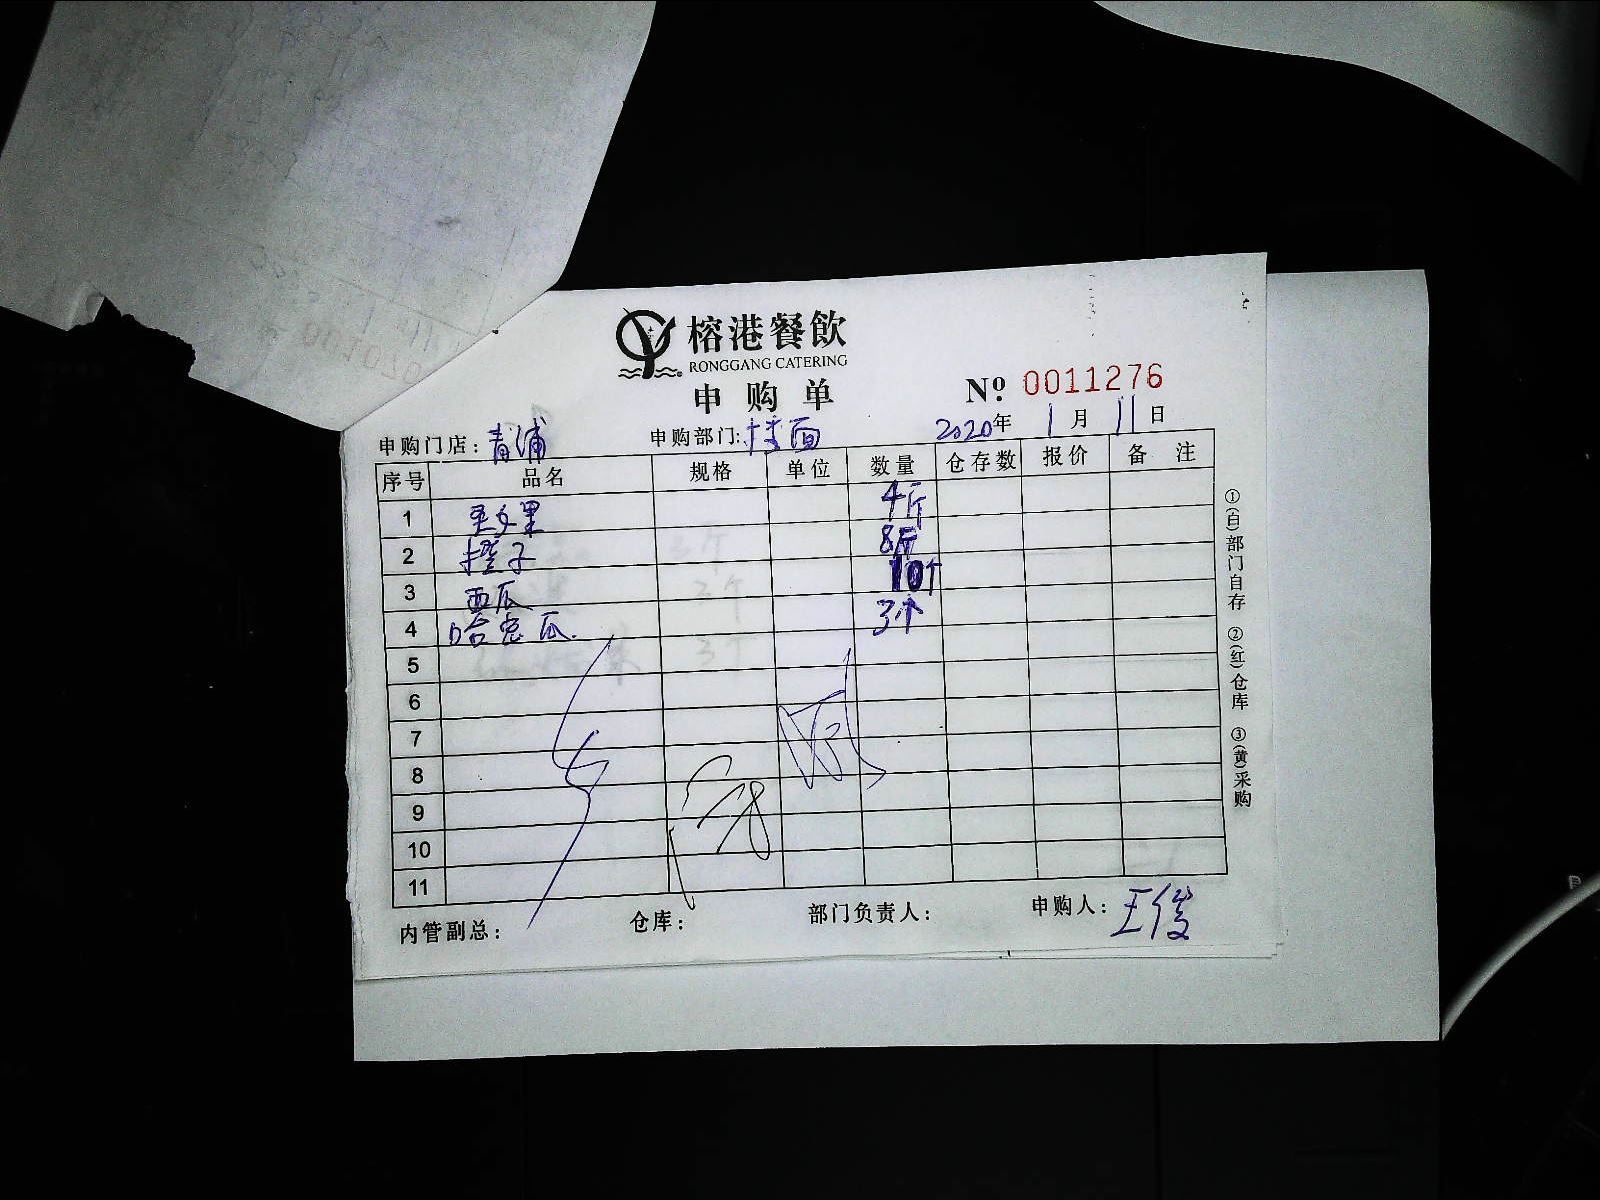 榕港餐飲
RONGGANG CATERING
申购单
№ 0011276
申购门店：青浦 申购部门：楼面 2020年 1月 11日
序号 品名 规格 单位 数量 仓存数 报价 备注
1 圣女果 4斤
2 橙子 8斤
3 西瓜 10个
4 哈密瓜. 3个
5
6
7
8
9
10
11
内管副总： 仓库： 部门负责人： 申购人：王俊
①(白)部门自存 ②(红)仓库 ③(黄)采购